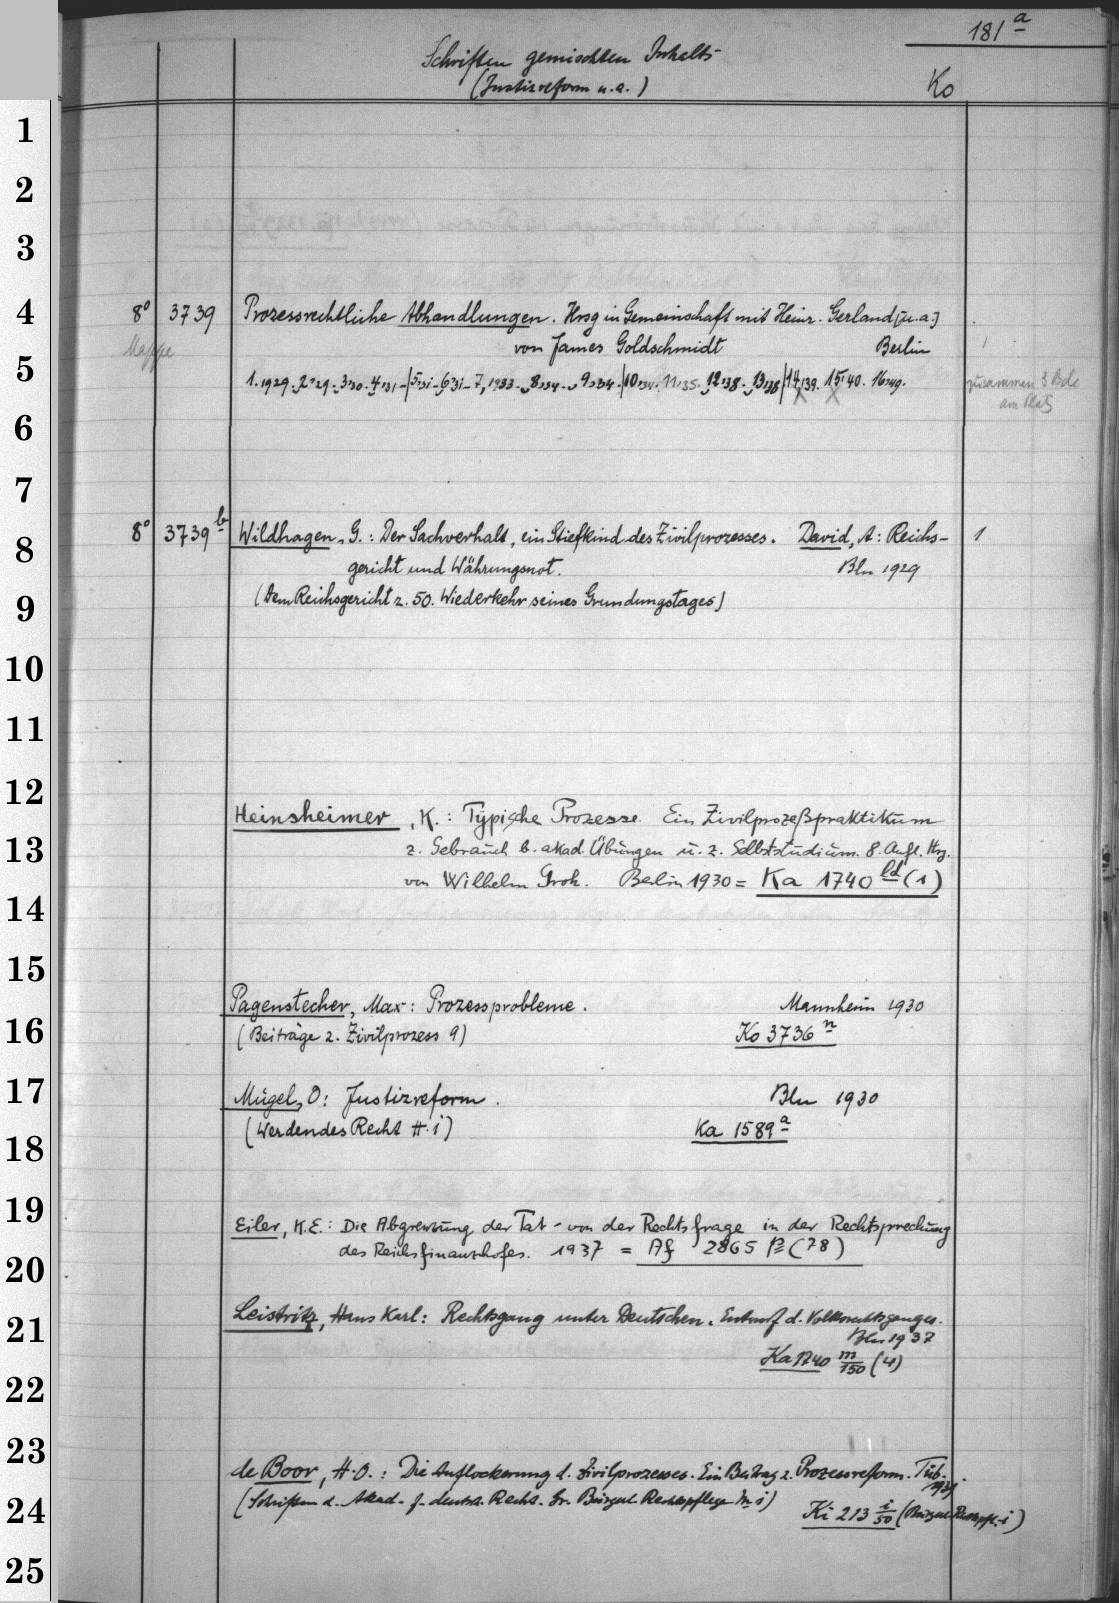 181 a
Schriften gemischten Inhalts
(Justizreform u.a.)
Ko
1
2
3
4
8° 3739 Prozessrechtliche Abhandlungen. Hrsg in Gemeinschaft mit Heinr. Gerland [u.a.]
Mappe von James Goldschmidt Berlin
5
1. 1929. 2. 29. 3. 30. 4. 31 - 5. 31 - 6. 31 - 7, 1933 - 8. 34 - 9. 34. 10. 34. 11. 35. 12. 38. 13. 38 14. 39. 15. 40. 16. 49.
zusammen 3 Bde
am Platz
6
7
8
8° 3739 b Wildhagen, G.: Der Sachverhalt, ein Stiefkind des Zivilprozesses. David, A: Reichs- 1
gericht und Währungsnot. Bln 1929
9
(Dem Reichsgericht z. 50. Wiederkehr seines Grundungstages)
10
11
12
Heinsheimer, K.: Typische Prozesse. Ein Zivilprozeßpraktikum
13
z. Gebrauch b. akad. Übungen u. z. Selbststudium. 8. Aufl. Hrsg.
von Wilhelm Groh. Berlin 1930 = Ka 1740 ld (1)
14
15
Pagenstecher, Max: Prozessprobleme. Mannheim 1930
16
(Beiträge z. Zivilprozess 9) Ko 3736 n
17
Mügel, O: Justizreform. Bln 1930
(Werdendes Recht H. i) Ka 1589 a
18
19
Eiler, K.E.: Die Abgrenzung der Tat - von der Rechtsfrage in der Rechtsprechung
des Reichsfinanzhofes. 1937 = Af 2865 β (78)
20
21
Leistritz, Hans Karl: Rechtsgang unter Deutschen. Entwurf d. Volksrechtsganges.
Bln 1937
Ka 1740 m/150 (4)
22
23
de Boor, H.O.: Die Auflockerung d. Zivilprozesses. Ein Beitrag z. Prozessreform. Tüb.
(Schriften d. Akad. f. deutsch. Recht. Gr. Bürgerl. Rechtspflege i)
24
Ki 213 i/50 (Bürgerl Rechtspfl. i)
25